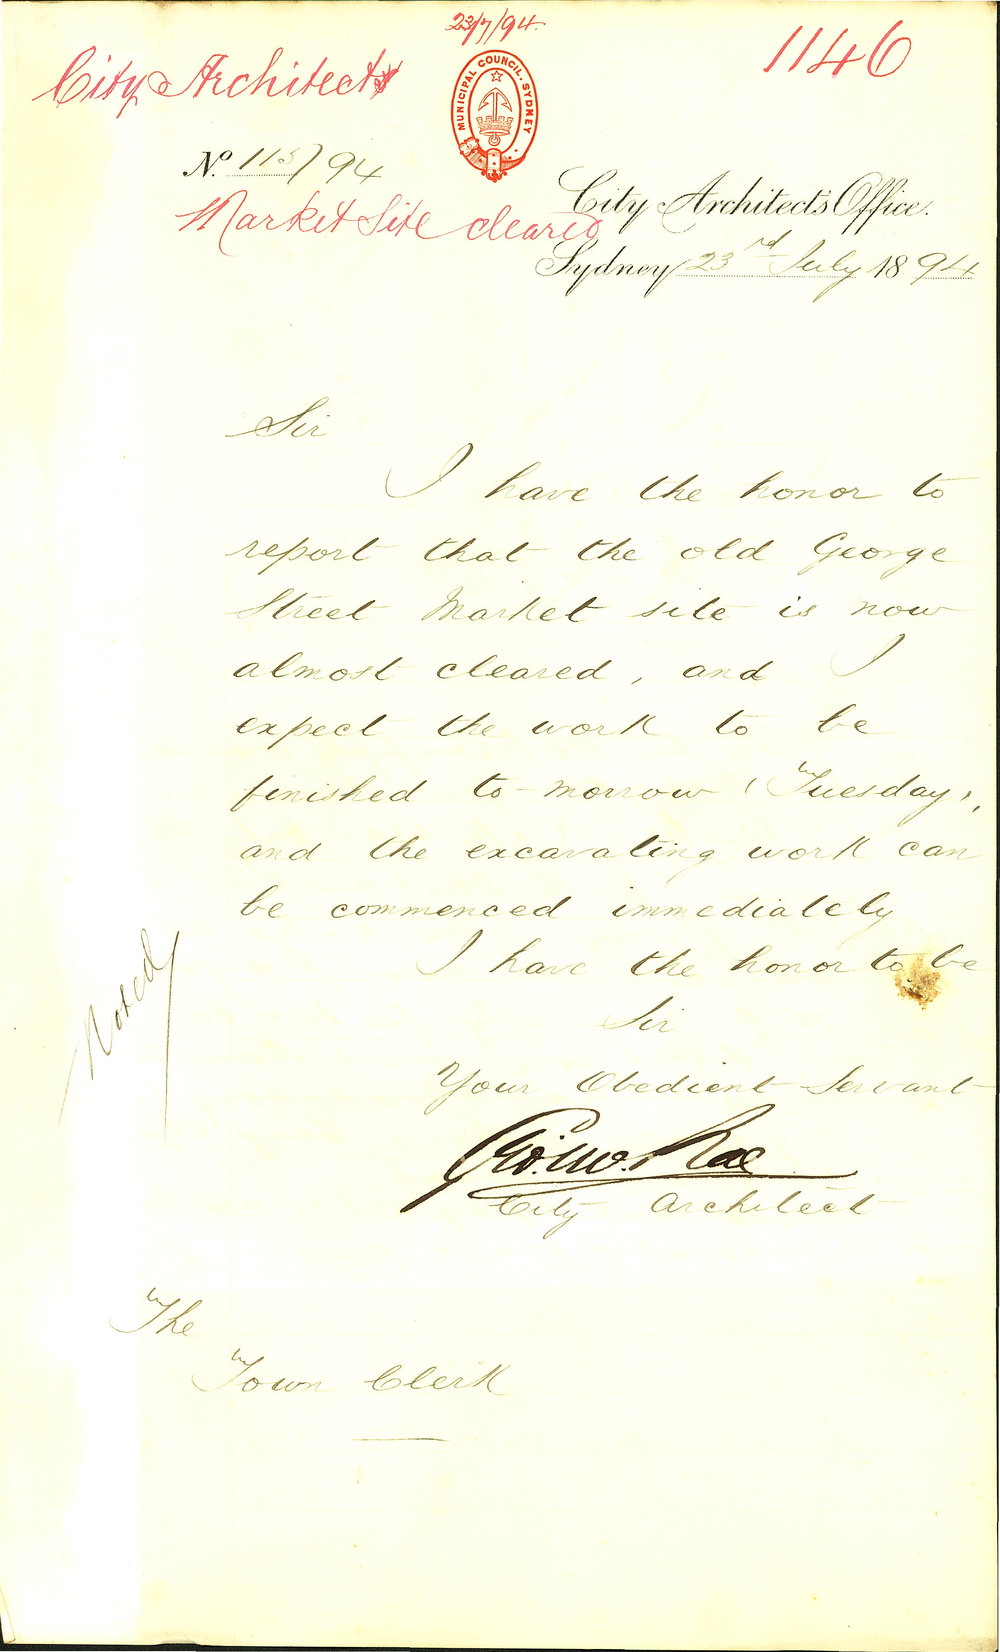 23/7/94.
1146
City Architect
MUNICIPAL COUNCIL. SYDNEY
No. 115/94
City Architect's Office.
Market Site cleared
Sydney 23rd July 1894
Sir
I have the honor to
report that the old George
Street Market site is now
almost cleared, and I
expect the work to be
finished to-morrow (Tuesday),
and the excavating work can
be commenced immediately
I have the honor to be
Sir
Your Obedient Servant
Geo. McRae
City Architect
Noted
The
Town Clerk